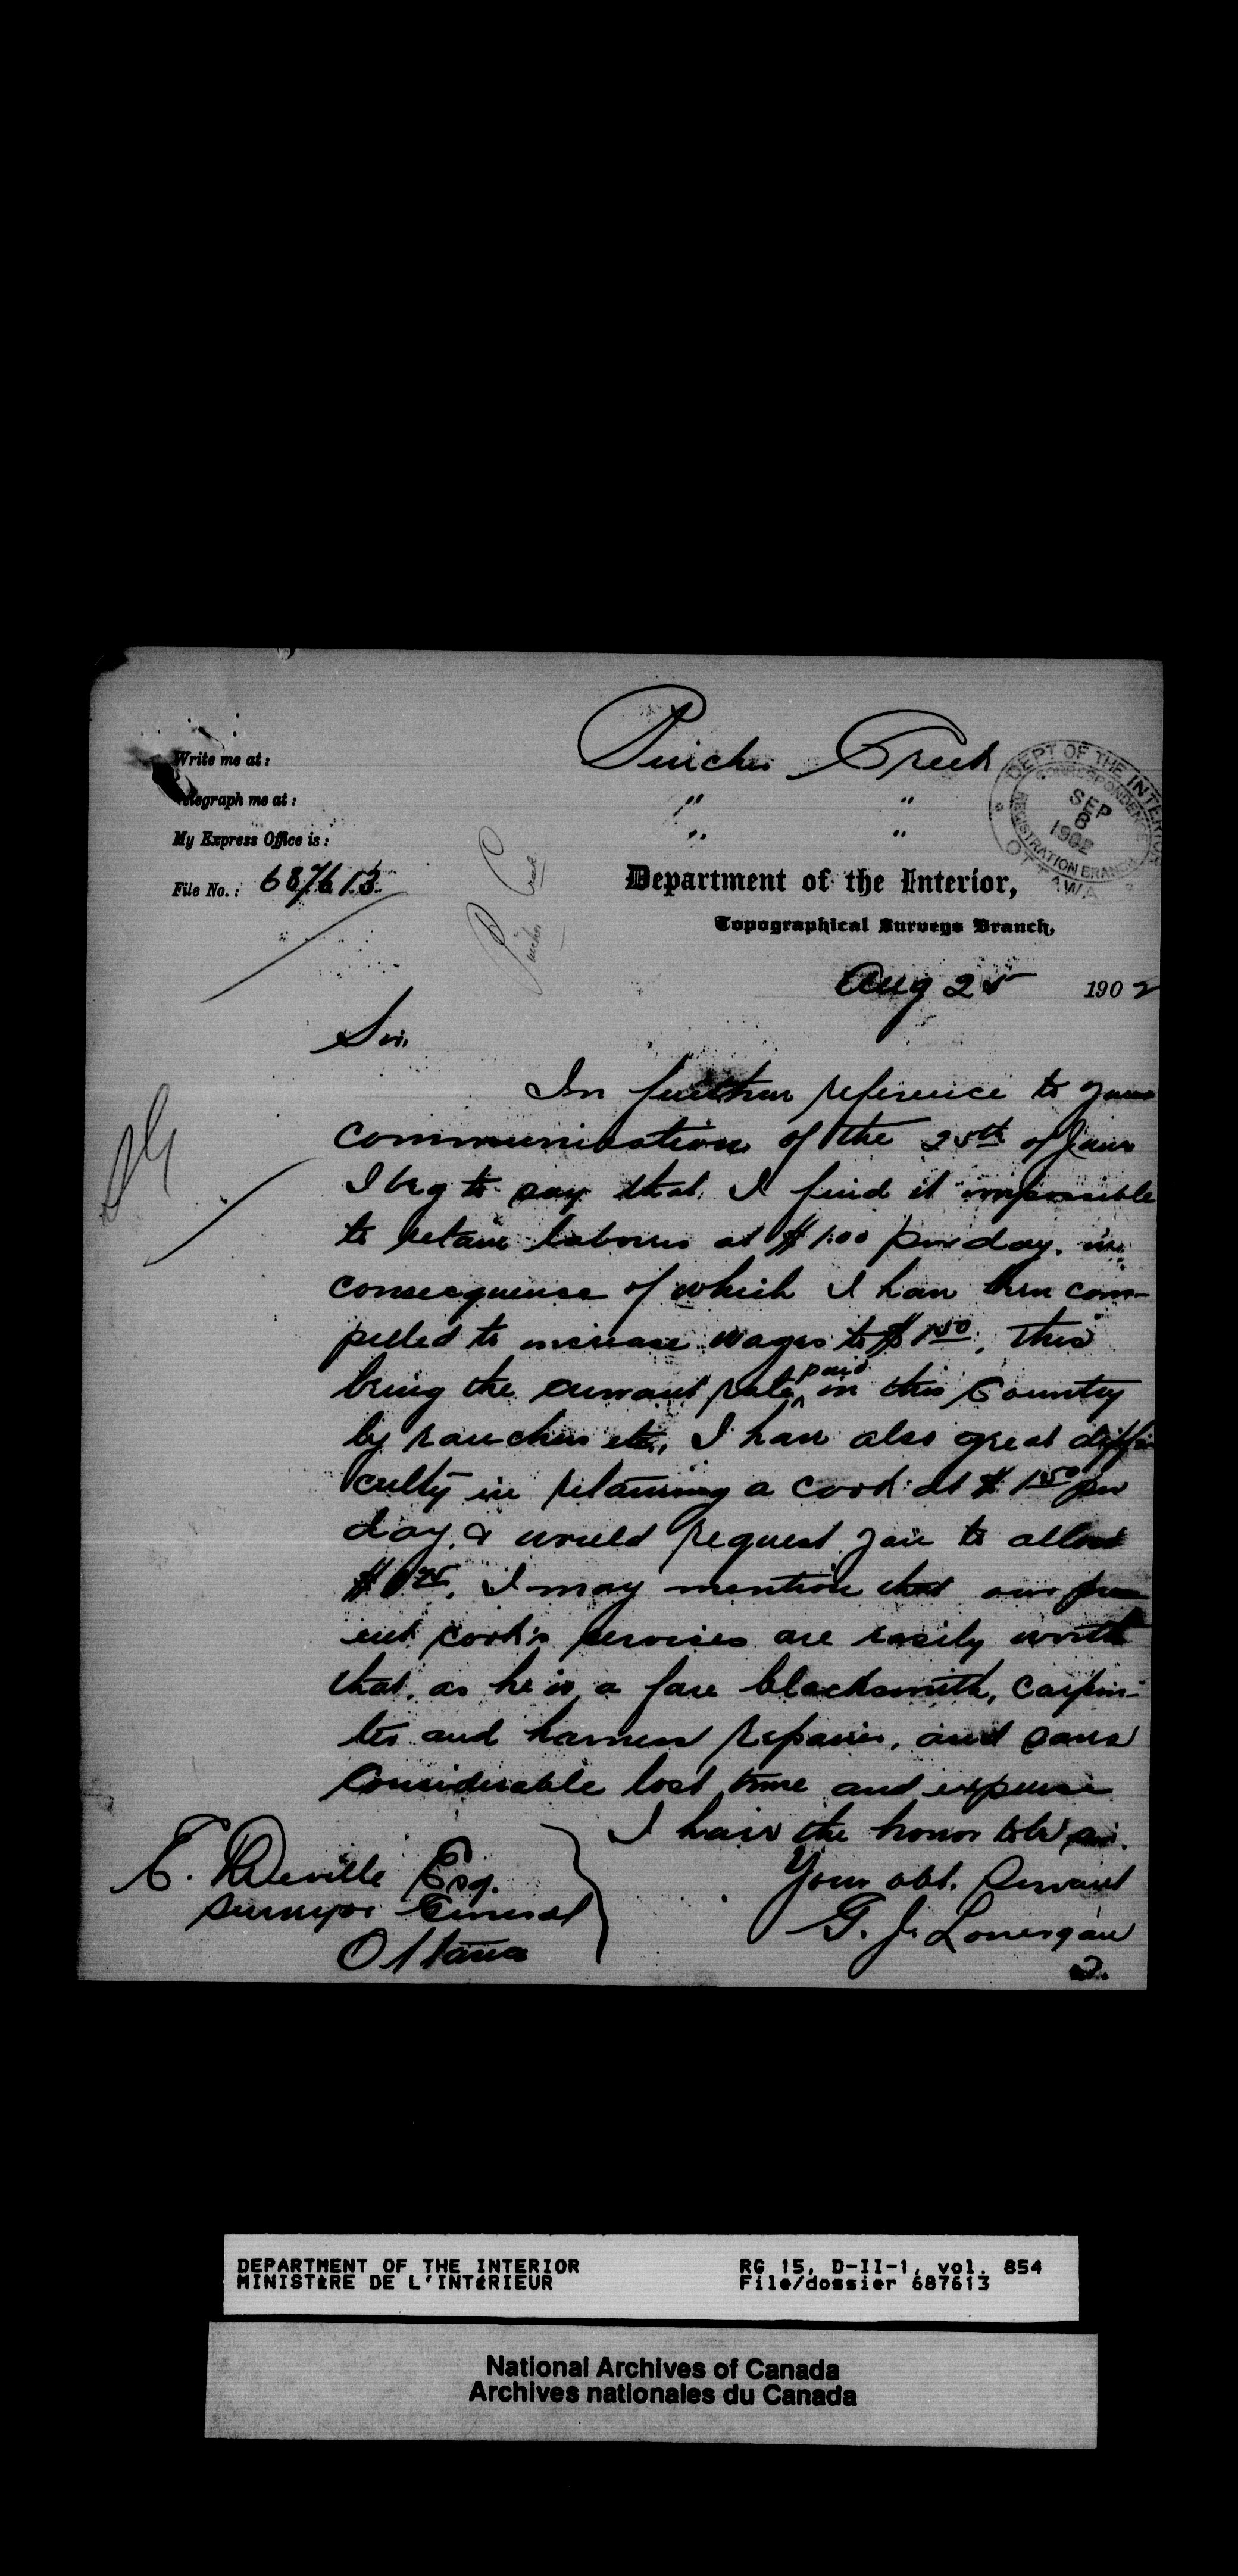 Write me at: Pincher Creek
Telegraph me at: " "
My Express Office is: " "
File No.: 687613
DEPT OF THE INTERIOR
CORRESPONDENCE
SEP
8
1902
REGISTRATION BRANCH
OTTAWA
Pincher Creek
Department of the Interior,
Topographical Surveys Branch,
Aug 25 1902
Sir,
In further reference to your
communication of the 25th of June
I beg to say that I find it impossible
to retain labourers at $1.00 per day, in
consequence of which I have been com-
pelled to increase wages to $1.50, this
being the currant rate paid in this Country
by ranchers etc, I have also great diffi
culty in retaining a cook at $1.50 per
day, & would request you to allow
$1.75, I may mention that our pres
ent cook's services are easily worth
that, as he is a fare blacksmith, carpin-
ter and harness repairer, and saves
considerable lost time and expense
I have the honor to be sir.
Your obt. Servant
G. J. Lonergan
E. Deville Esq.
Surveyor General
Ottawa
2.
DEPARTMENT OF THE INTERIOR RG 15, D-II-1, vol. 854
MINISTÈRE DE L'INTÉRIEUR File/dossier 687613
National Archives of Canada
Archives nationales du Canada